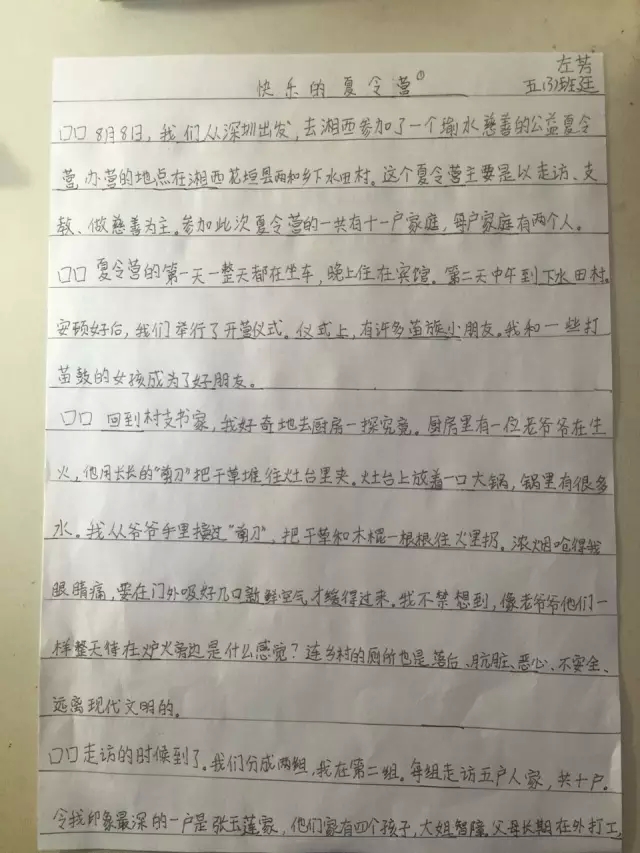 左芳
快乐的夏令营①
五(3)班
口口8月8日，我们从深圳出发，去湘西参加了一个瑜水慈善的公益夏令
营，办营的地点在湘西花垣县两和乡下水田村。这个夏令营主要是以走访、支
教、做慈善为主。参加此次夏令营的一共有十一户家庭，每户家庭有两个人。
口口 夏令营的第一天一整天都在坐车，晚上住在宾馆。第二天中午到下水田村。
安顿好后，我们举行了开营仪式。仪式上，有许多苗族小朋友。我和一些打
苗鼓的女孩成为了好朋友。
口口 回到村支书家，我好奇地去厨房一探究竟。厨房里有一位老爷爷在生
火，他用长长的“剪刀”把干草堆往灶台里夹。灶台上放着一口大锅，锅里有很多
水。我从爷爷手里接过“剪刀”，把干草和木棍一根根往火里扔。浓烟呛得我
眼睛痛，要在门外吸好几口新鲜空气才缓得过来。我不禁想到，像老爷爷他们一
样整天待在炉火旁边是什么感觉？连乡村的厕所也是落后、肮脏、恶心、不安全、
远离现代文明的。
口口走访的时候到了。我们分成两组，我在第二组。每组走访五户人家，共十户。
令我印象最深的一户是张玉莲家，他们家有四个孩子，大姐智障，父母长期在外打工，